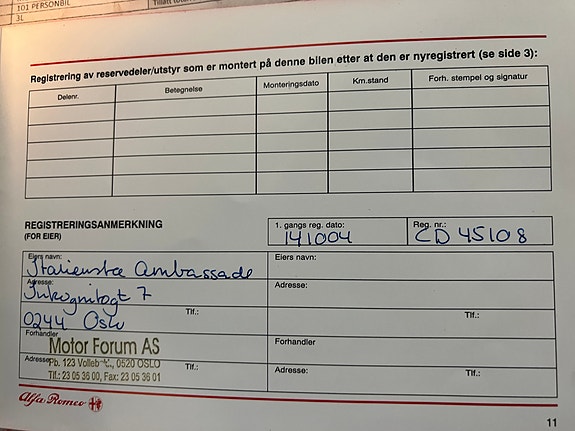 101 PERSONBIL
3L
Registrering av reservedeler/utstyr som er montert på denne bilen etter at den er nyregistrert (se side 3):
Delenr. Betegnelse Monteringsdato Km.stand Forh. stempel og signatur
REGISTRERINGSANMERKNING
(FOR EIER)
1. gangs reg. dato:
141004
Reg. nr.:
CD 45108
Eiers navn:
Italienske Ambassade
Adresse:
Inkognitogt 7
0244 Oslo
Tlf.:
Forhandler
Motor Forum AS
Adresse:
Pb. 123 0520 OSLO
Tlf.:
Tlf.: 23 05 36 00, Fax: 23 05 36 01
Eiers navn:
Adresse:
Tlf.:
Forhandler
Adresse:
Tlf.:
Alfa Romeo
11